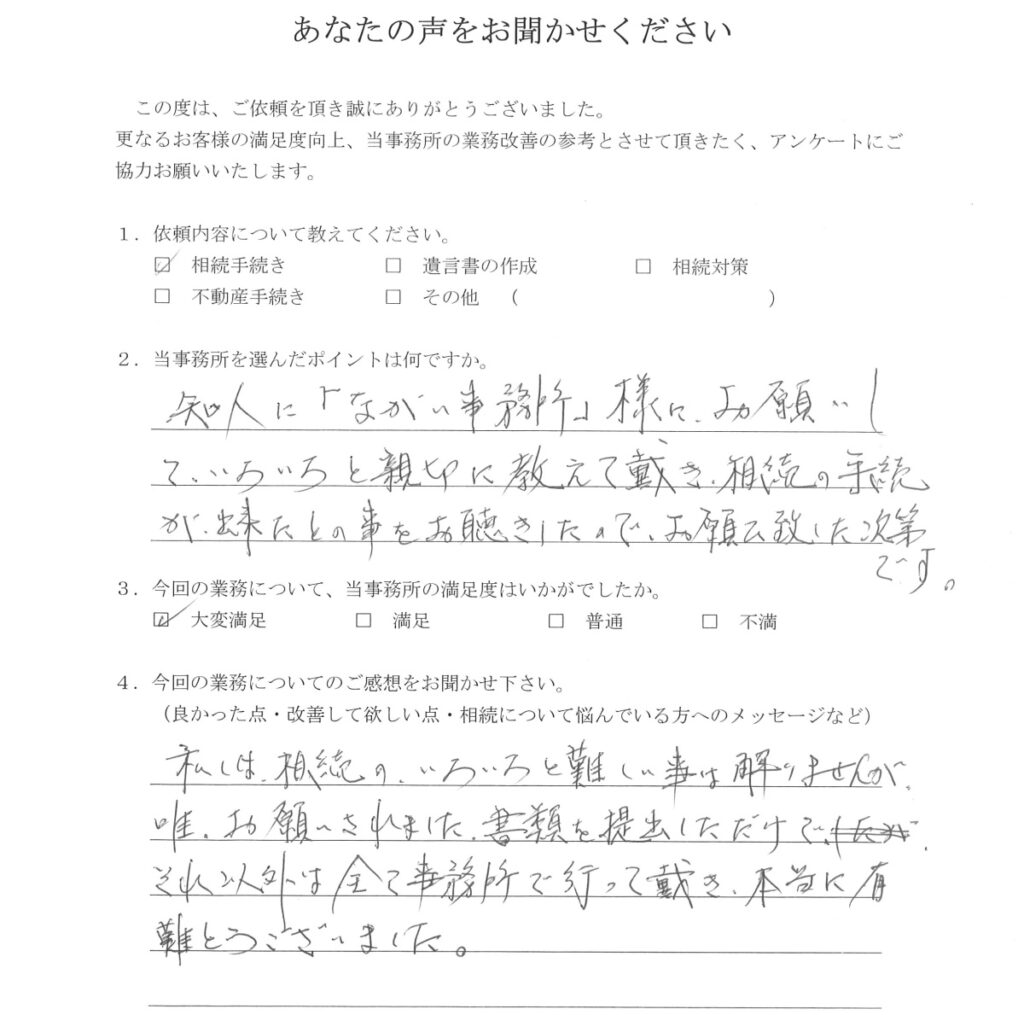 あなたの声をお聞かせください
この度は、ご依頼を頂き誠にありがとうございました。
更なるお客様の満足度向上、当事務所の業務改善の参考とさせて頂きたく、アンケートにご
協力お願いいたします。
１．依頼内容について教えてください。
☑ 相続手続き □ 遺言書の作成 □ 相続対策
□ 不動産手続き □ その他 （ ）
２．当事務所を選んだポイントは何ですか。
知人に「ながい事務所」様に、お願いし
て、いろいろと親切に教えて戴き、相続の手続
が、出来たとの事をお聴きしたので、お願い致した次第
です。
３．今回の業務について、当事務所の満足度はいかがでしたか。
☑ 大変満足 □ 満足 □ 普通 □ 不満
４．今回の業務についてのご感想をお聞かせ下さい。
（良かった点・改善して欲しい点・相続について悩んでいる方へのメッセージなど）
私しは、相続の、いろいろと難しい事は解りませんが、
唯、お願いされました、書類を提出しただけで、
それ以外は全て事務所で行って戴き、本当に有
難とうございました。